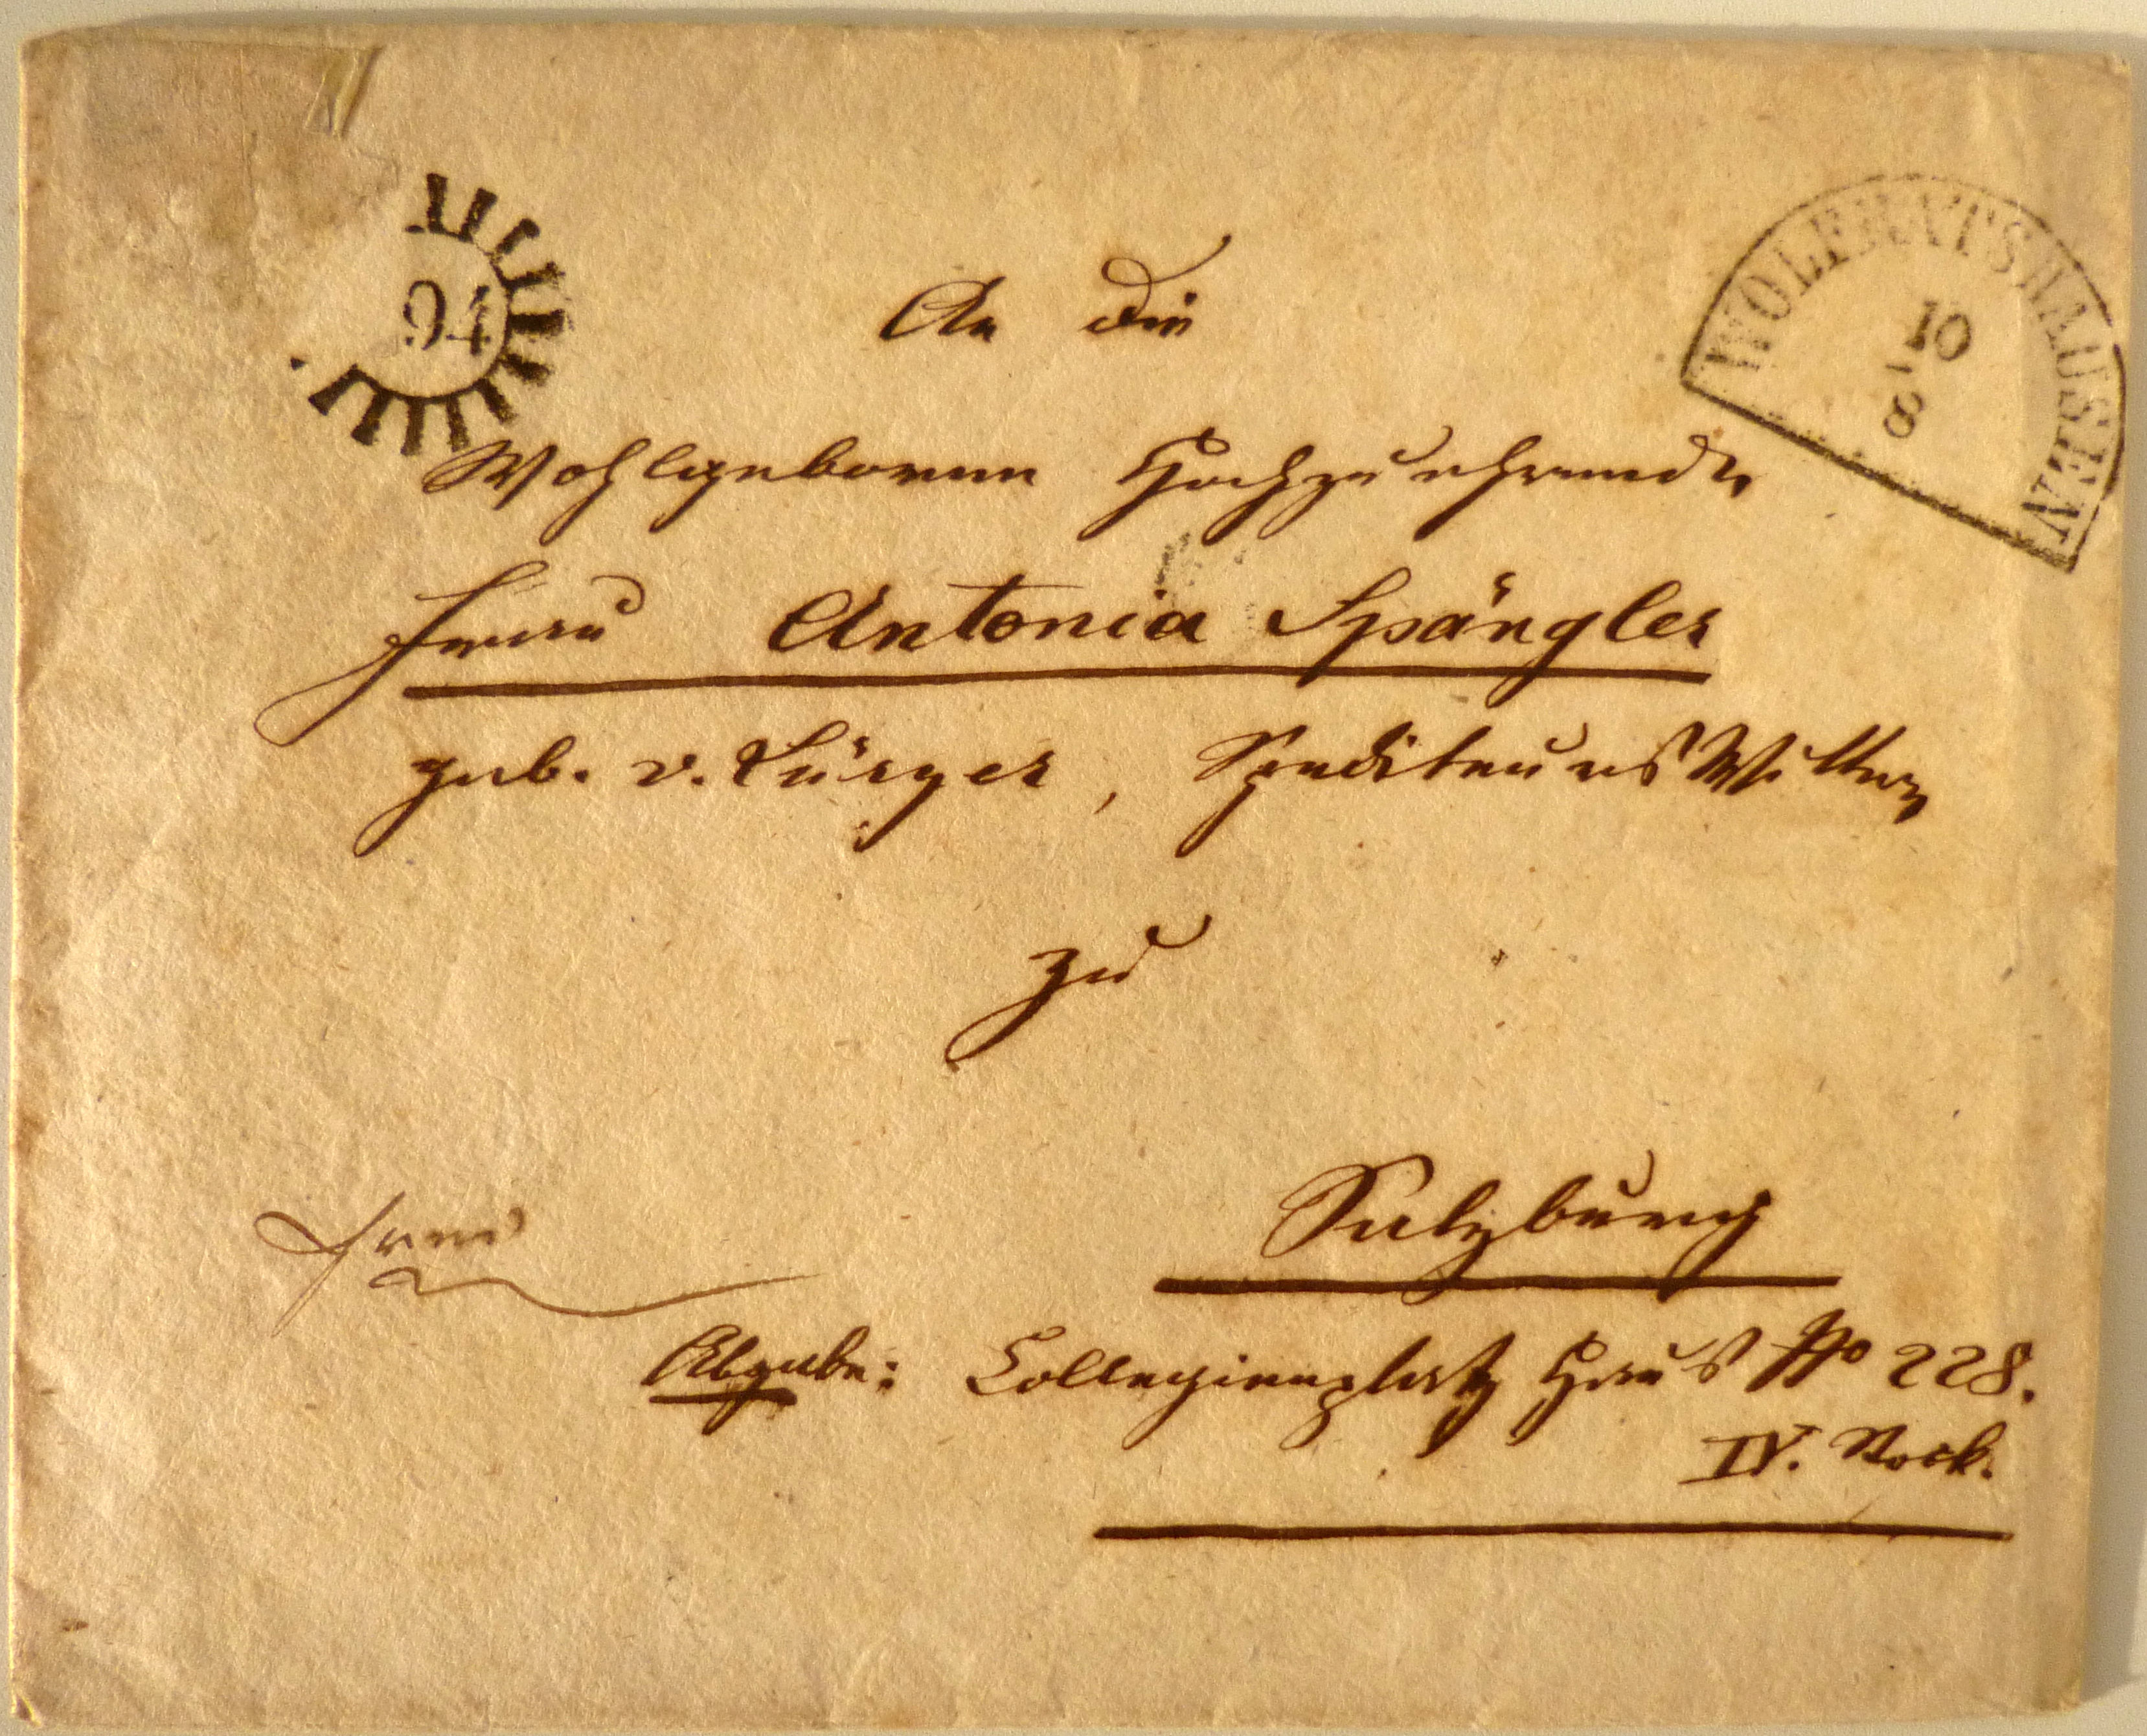 94
WOLFRATSHAUSEN
10
8
An die
Wohlgeborne Hochzuehrende
Frau Antonia Spängler
geb. v. Lürzer, Spediteurs Wittwe
zu
Salzburg
franco
Abgabe: Collegienplatz Haus No 228.
IV. Stock.